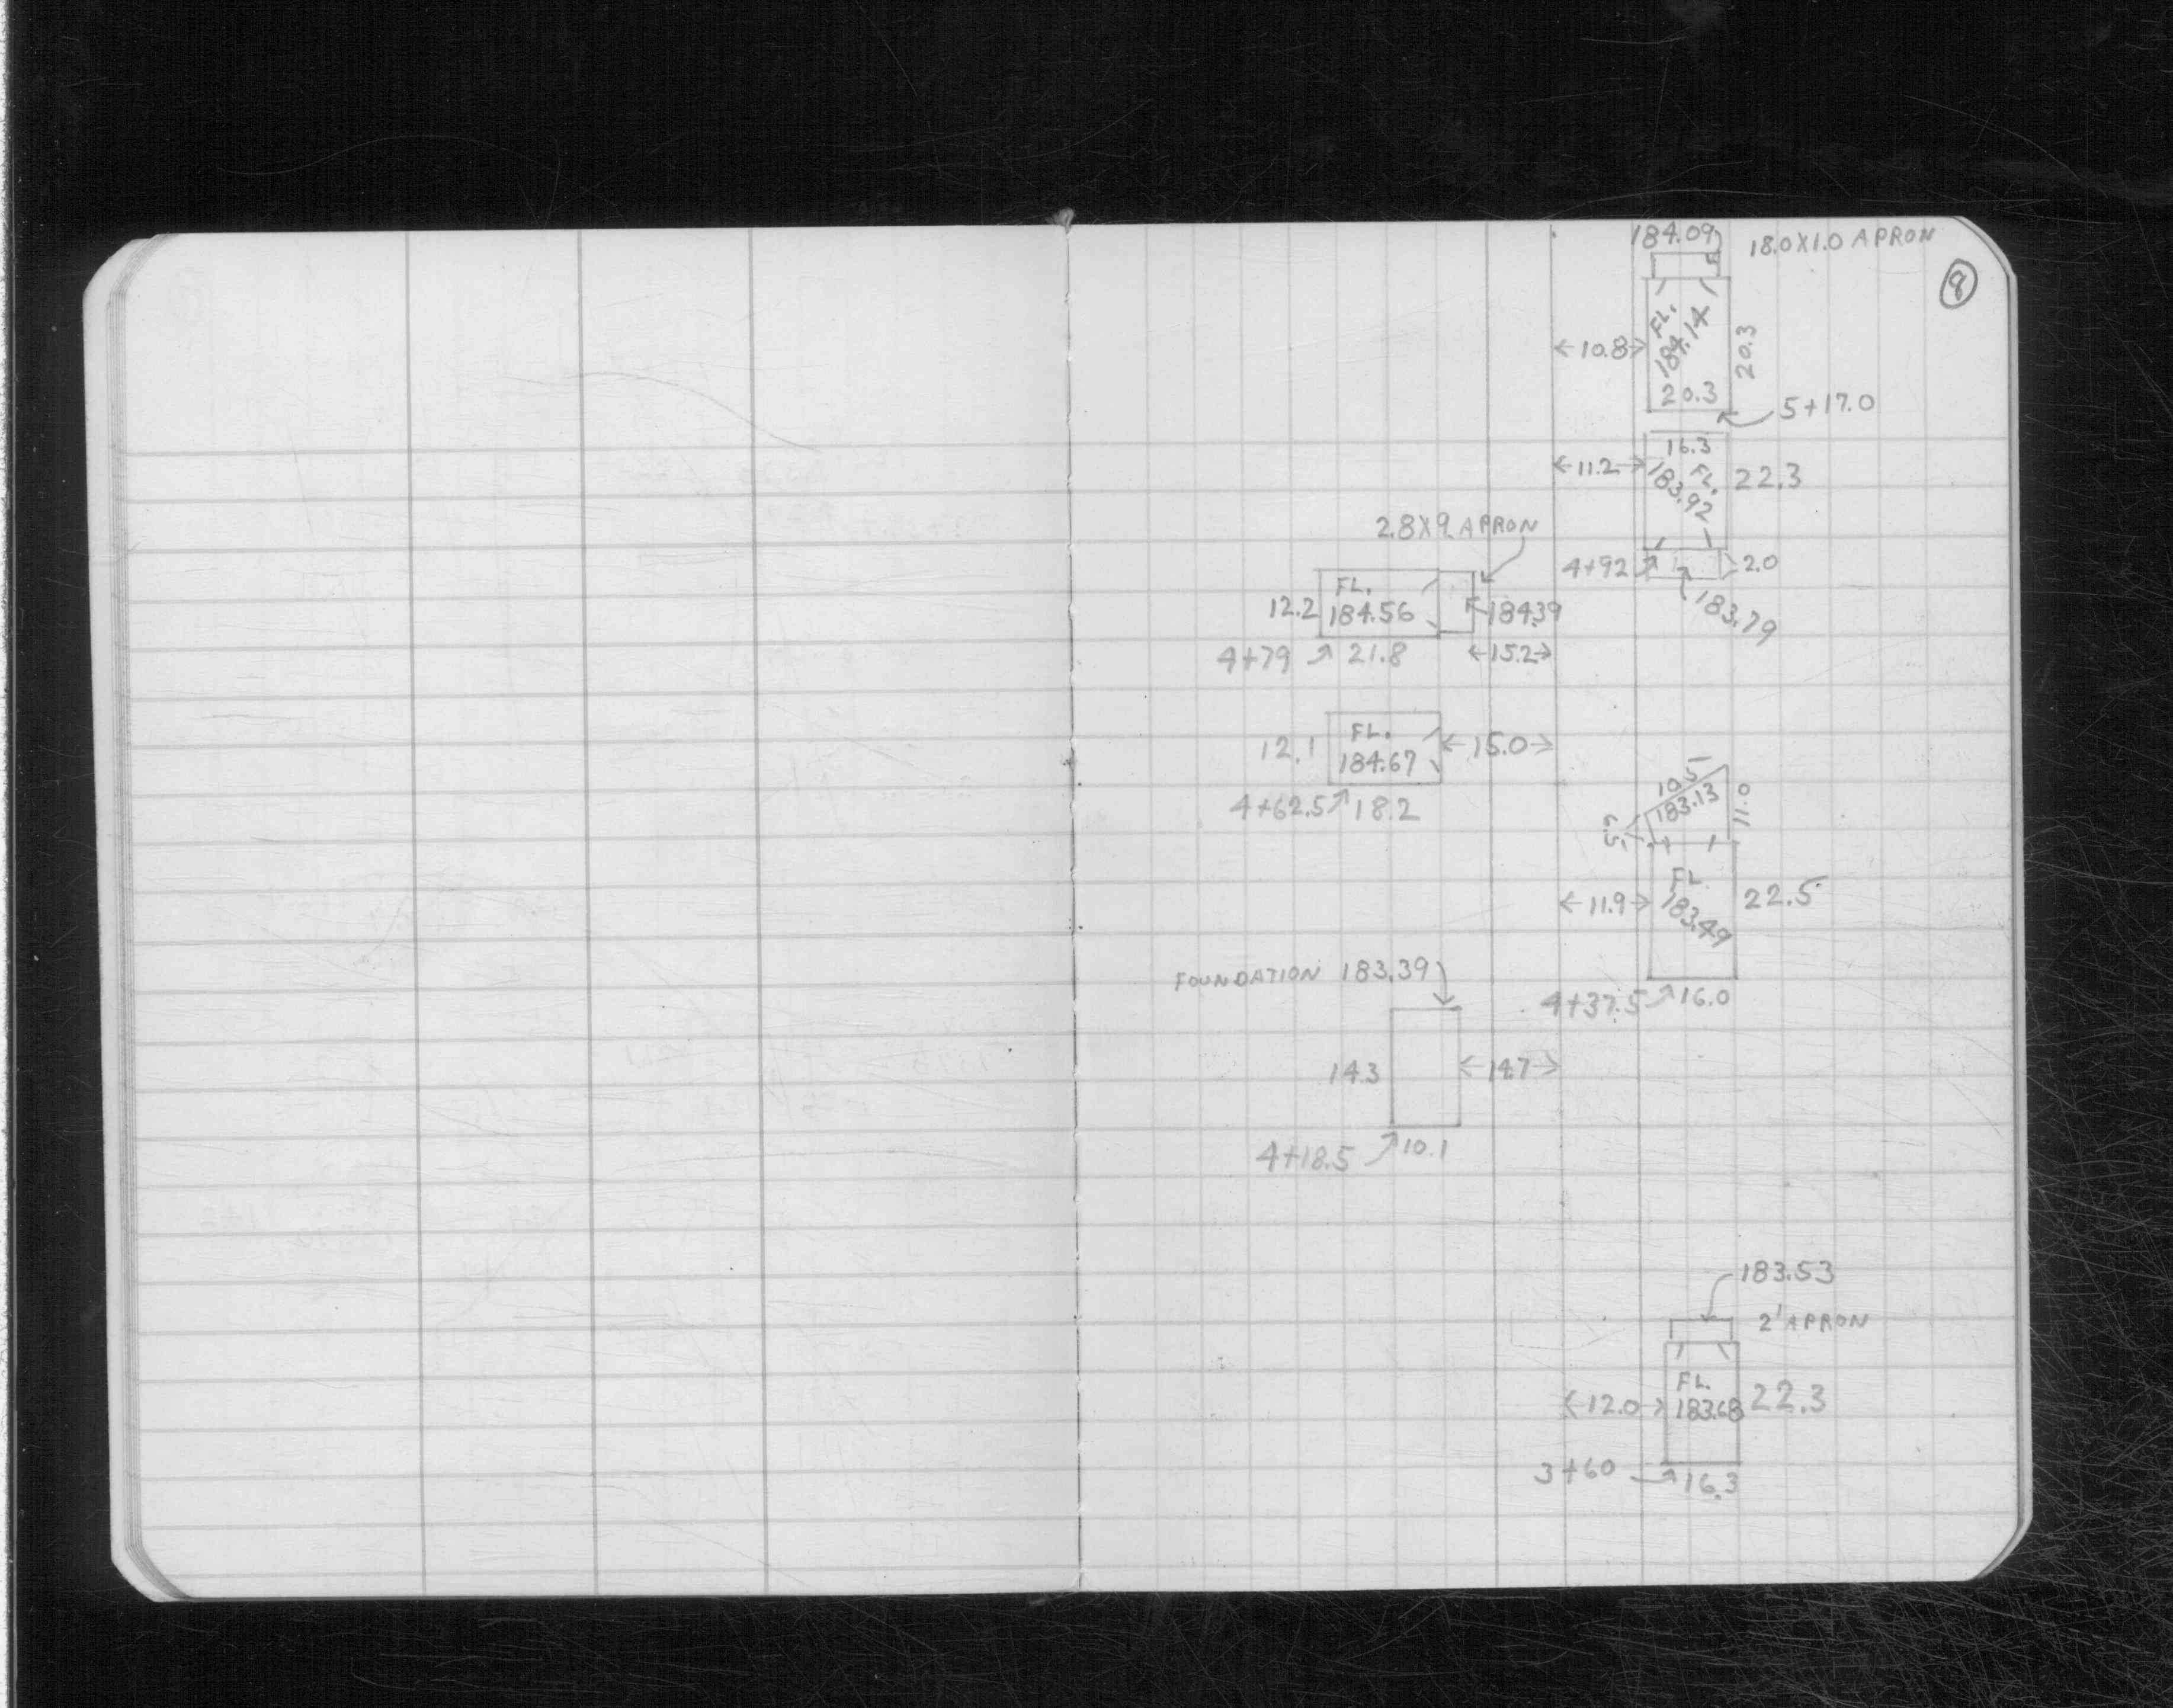 184.09
18.0X1.0 APRON
8
FL.
184.14
←10.8→
20.3
20.3
5+17.0
16.3
←11.2→
FL.
183.92
22.3
2.8X9 APRON
4+92
2.0
183.79
FL.
12.2
184.56
184.39
4+79
21.8
←15.2→
FL.
12.1
184.67
←15.0→
4+62.5
18.2
10.5
183.13
11.0
FL.
←11.9→
183.49
22.5
FOUNDATION 183.39
4+37.5
16.0
14.3
←14.7→
4+18.5
10.1
183.53
2' APRON
FL.
←12.0→
183.68
22.3
3+60
16.3